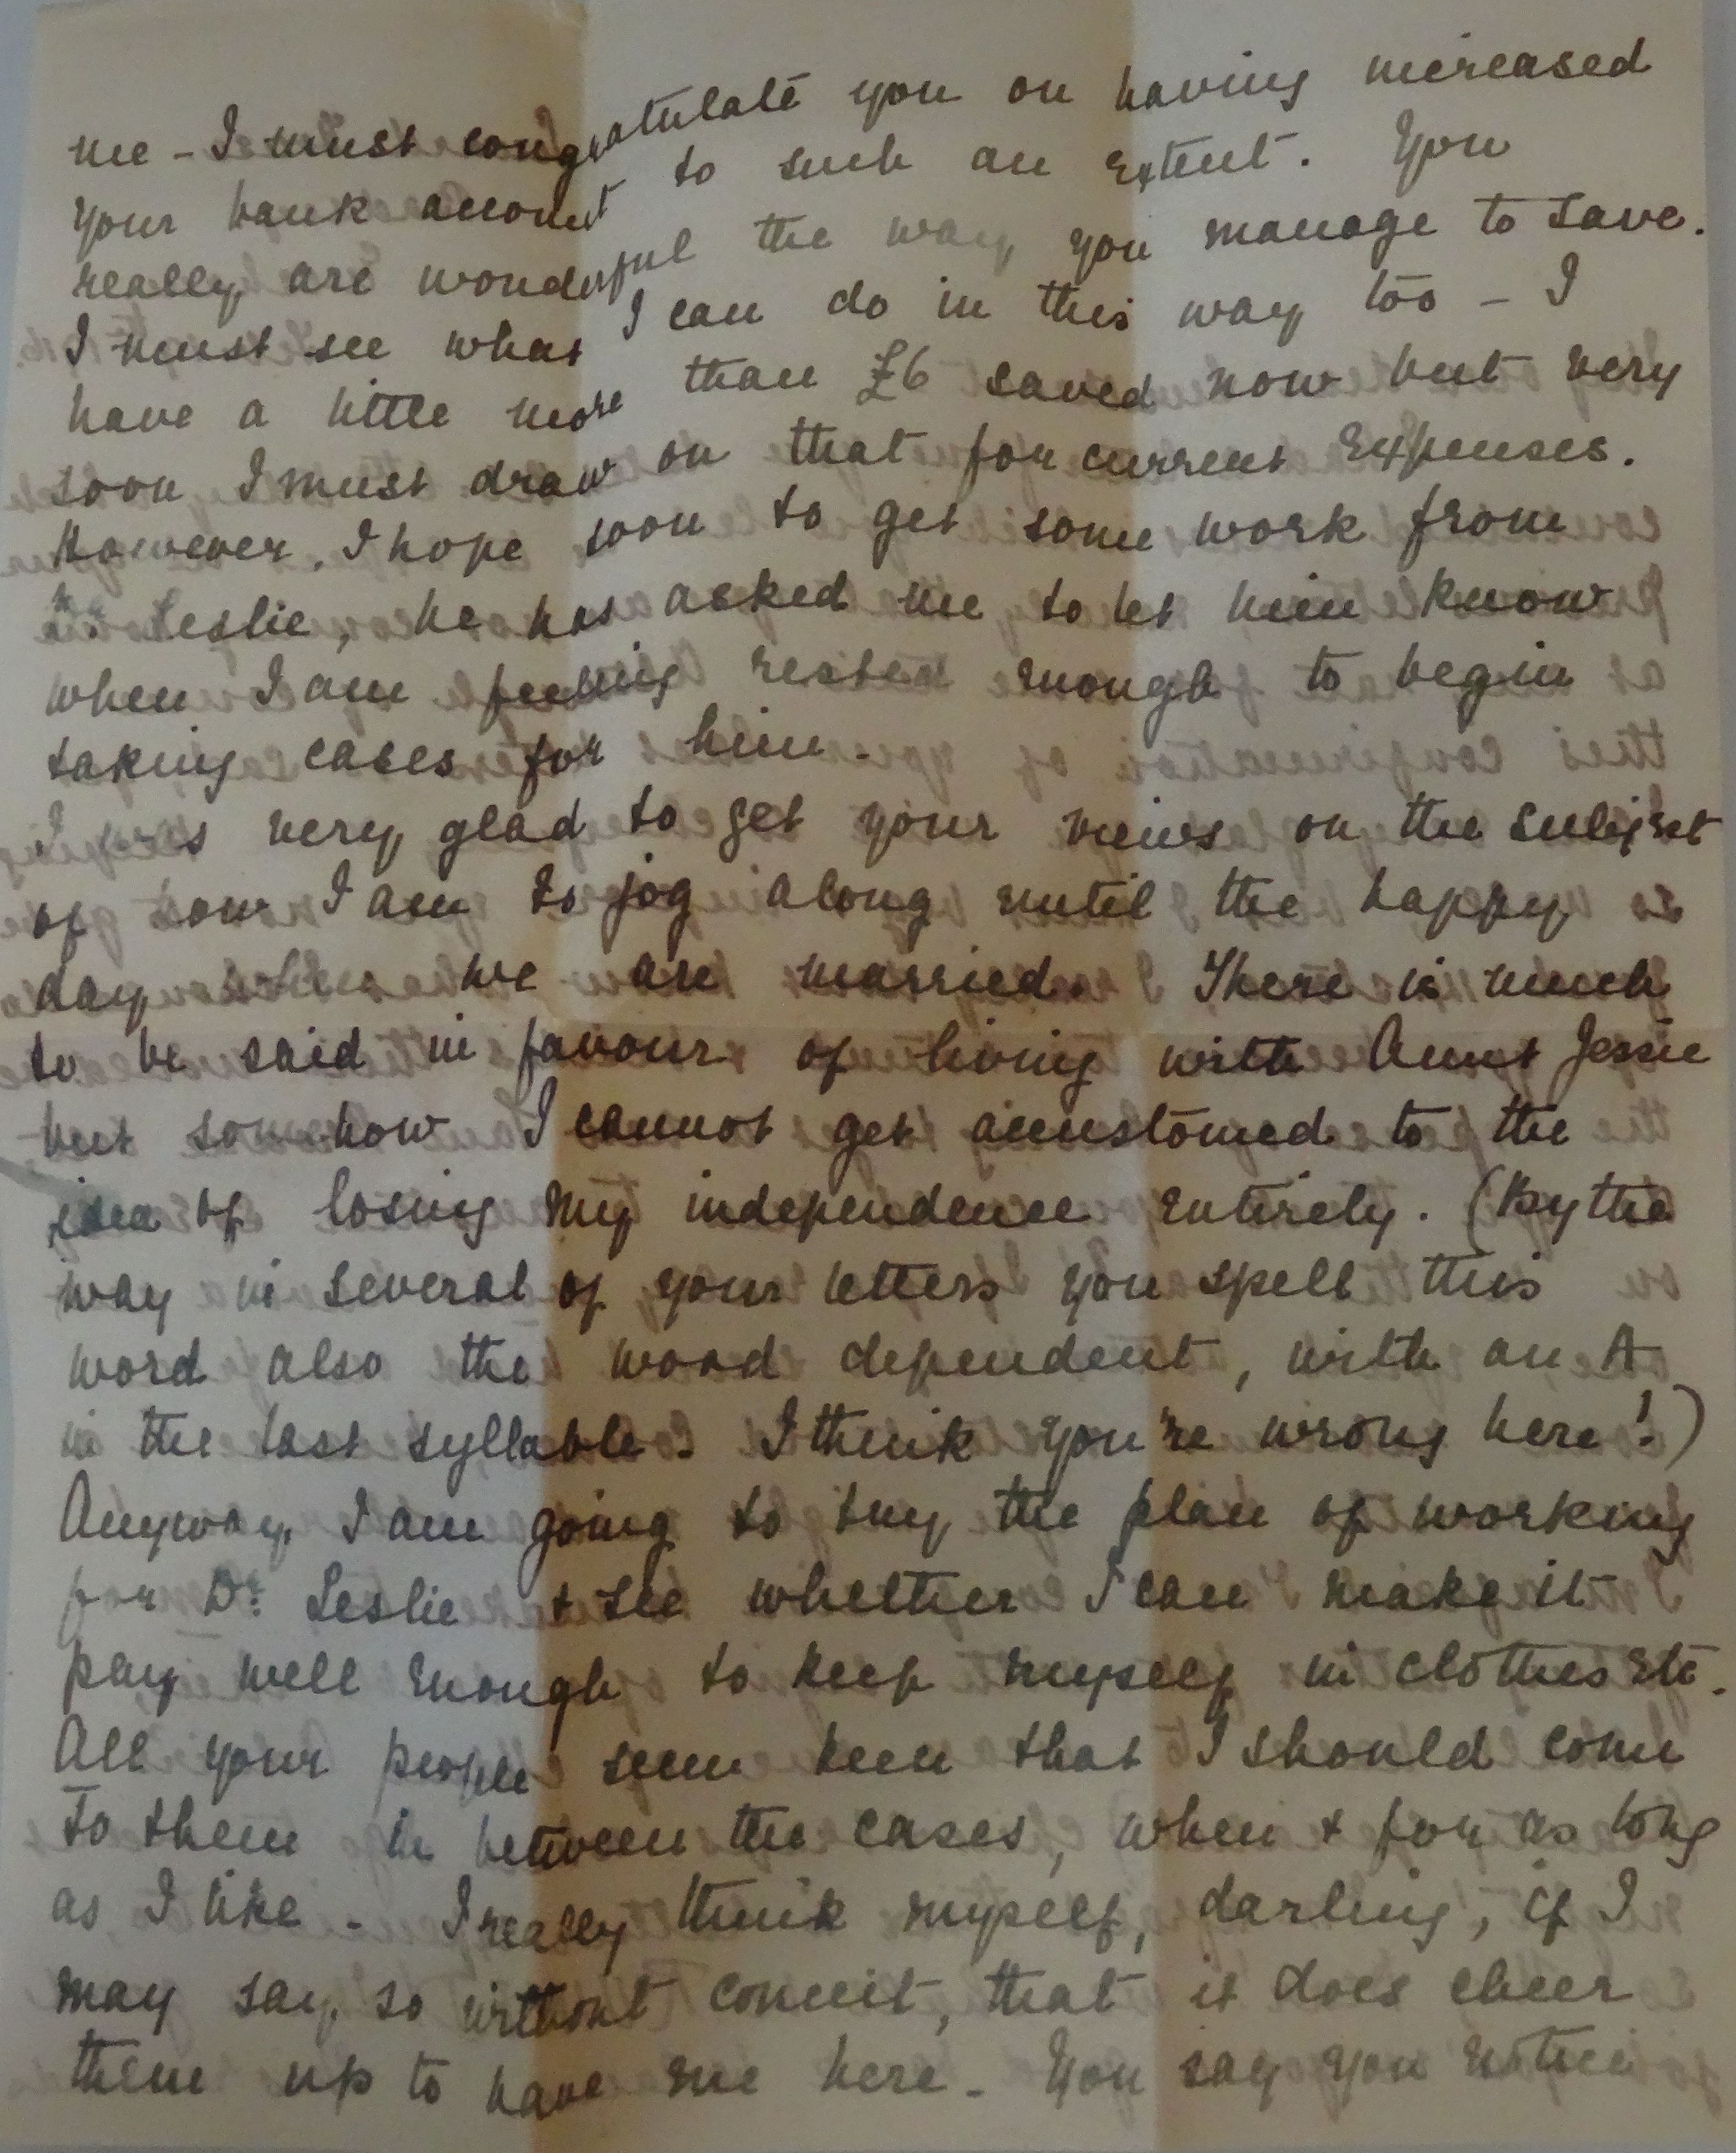 me - I must congratulate you on having increased
your bank account to such an extent. You
really are wonderful the way you manage to save.
I must see what I can do in this way too - I
have a little more than £6 saved now but very
soon I must draw on that for current expenses.
However, I hope soon to get some work from
Dr. Leslie, he has asked me to let him know
when I am feeling rested enough to begin
taking cases for him.
I was very glad to get your views on the subject
of how I am to jog along until the happy
day when we are married. There is much
to be said in favour of living with Aunt Jessie
but somehow I cannot get accustomed to the
idea of losing my independence entirely. (By the
way in several of your letters you spell this
word also the word dependent, with an A
in the last syllable. I think you're wrong here!)
Anyway, I am going to try the plan of working
for Dr. Leslie & see whether I can make it
pay well enough to keep myself in clothes etc.
All your people seem keen that I should come
to them in between the cases, when & for as long
as I like - I really think myself, darling, if I
may say so without conceit, that it does cheer
them up to have me here - You say you notice